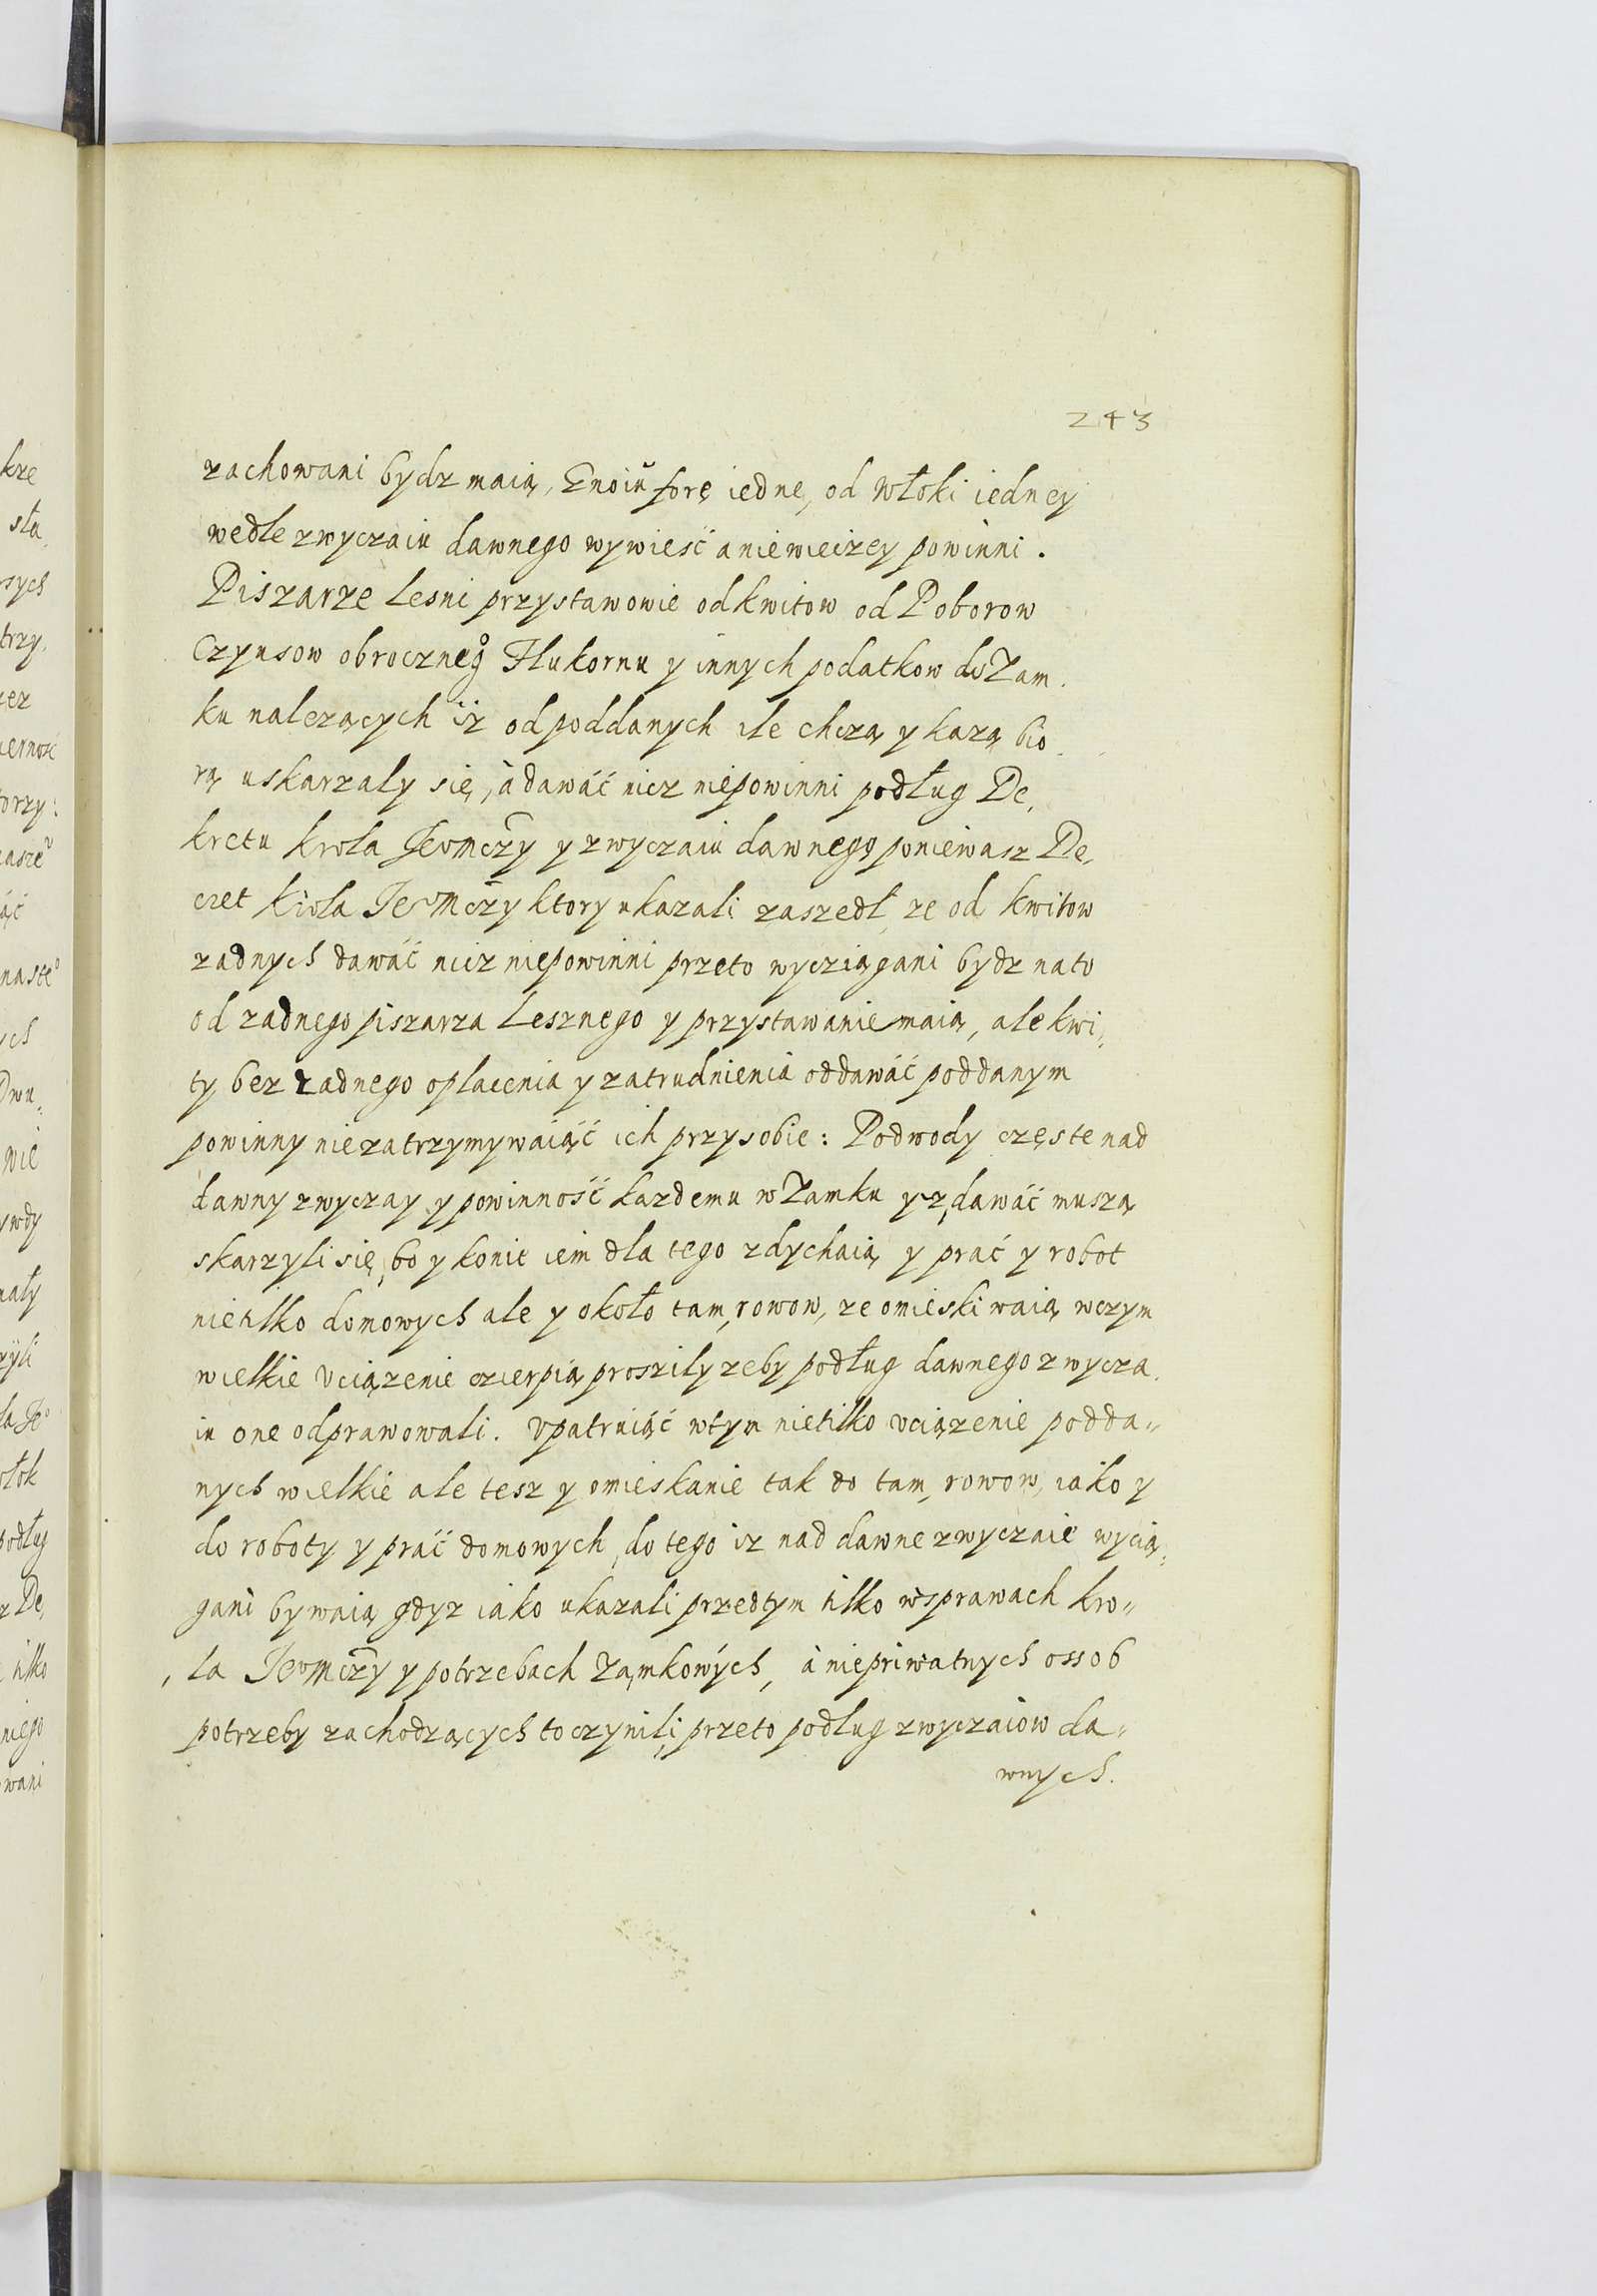 243
zachowani bydz maią, Gnoiu forę iedne, od Włoki iedney
wedle zwyczaiu dawnego wywieść a niewieczey powinni.
Piszarze Lesni przystawowie od kwitow od Poborow
Czynsow obroczneg° Hukornu y innych podatkow do Zam
ku nalezących iz od poddanych ile chczą y kazą bio
rą uskarzaly się, à dawáć nicz niepowinni podług De,
kretu krola Jeomczy y zwyczaiu dawnego poniewasz De,
cret krola Jeomczy ktory ukazali zaszedł, ze od kwitow
zadnych dawáć nicz niepowinni przeto wycziągani bydz nato
od zadnego piszarza Lesznego y przystawa nie maią, ale kwi,
ty bez zadnego oplacenia y zatrudnienia oddawáć poddanym
powinny niezatrzymywaiąć ich przy sobie: Podwody częste nad
dawny zwyczay y powinność kazdemu w Zamku yz dawáć muszą
skarzyli się, bo y konie iem dla tego zdychaią y prać y robot
nietilko domowych ale y około tam, rowow, ze omieskiwaią wczym
wielkie Uciązenie czierpią prosziły zeby podług dawnego zwycza,
iu one odprawowali. Upatruiąć wtym nietilko uciązenie podda„
nych wielkie ale tesz y omieskanie tak do tam, rowow, iako y
do roboty y prać domowych, do tego iz nad dawne zwyczaie wycią,
gani bywaią gdyz iako ukazali przedtym tilko w sprawach kro„
la Jeomczy y potrzebach Zamkowych, à nie priwatnych ossob
potrzeby zachodzących to czynili, przeto podług zwyczaiow da„
wnych.